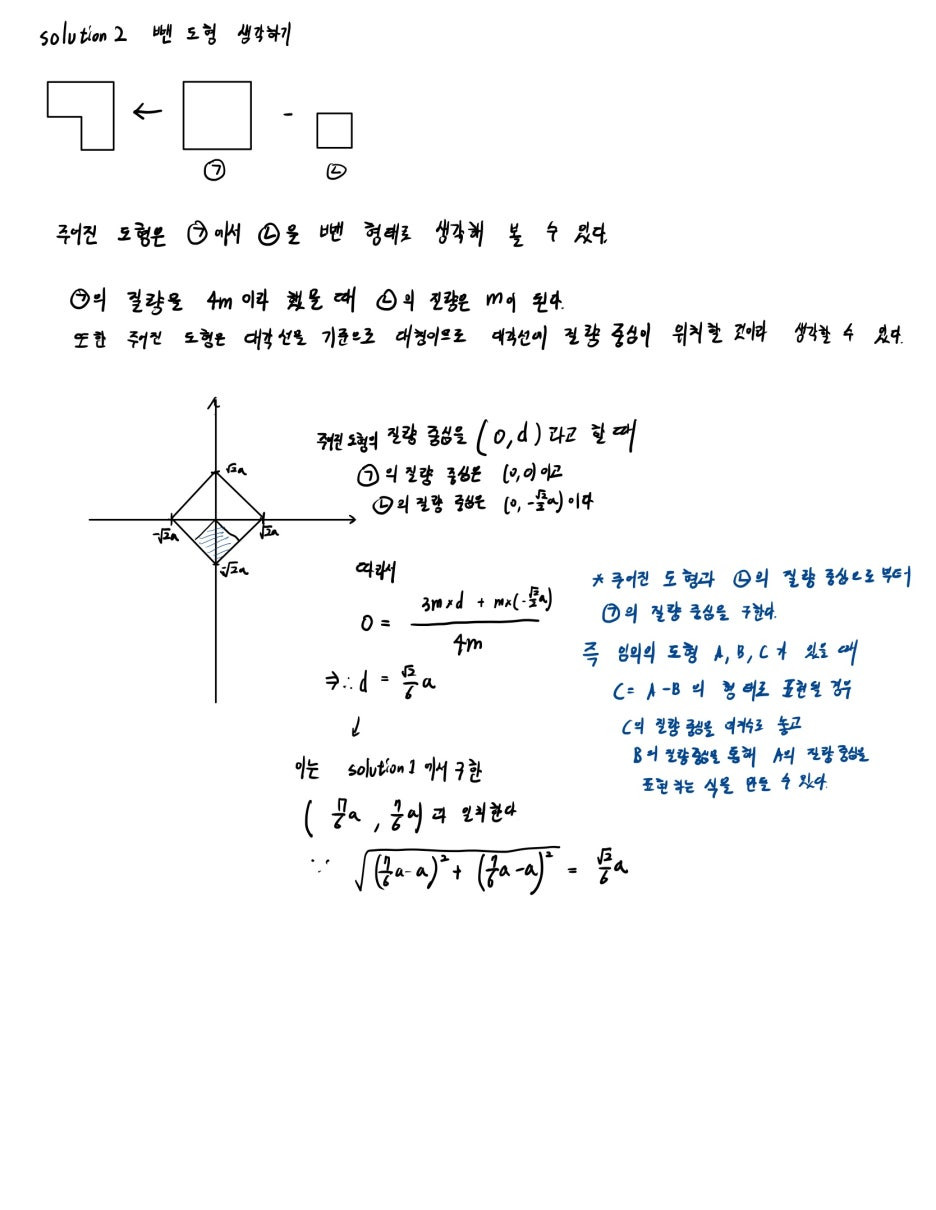 solution 2 뺀 도형 생각하기
← -
㉠ ㉡
주어진 도형은 ㉠에서 ㉡을 뺀 형태로 생각해 볼 수 있다.
㉠의 질량을 4m 이라 했을 때 ㉡의 질량은 m이 된다.
또한 주어진 도형은 대각선을 기준으로 대칭이므로 대각선에 질량 중심이 위치할 것이라 생각할 수 있다.
√2a
-√2a √2a
-√2a
주어진 도형의 질량 중심을 (0,d) 라고 할 때
㉠의 질량 중심은 (0,0)이고
㉡의 질량 중심은 (0, -√2/2 a)이다
따라서
0 = (3m×d + m×(-√2/2 a)) / 4m
⇒ ∴ d = √2/6 a
↓
이는 solution 1 에서 구한
(7/6 a, 7/6 a)과 일치한다
∵ √((7/6 a - a)² + (7/6 a - a)²) = √2/6 a
* 주어진 도형과 ㉡의 질량 중심으로부터
㉠의 질량 중심을 구한다.
즉 임의의 도형 A, B, C가 있을 때
C = A - B 의 형태로 표현될 경우
C의 질량 중심을 미지수로 놓고
B의 질량중심을 통해 A의 질량 중심을
표현하는 식을 만들 수 있다.